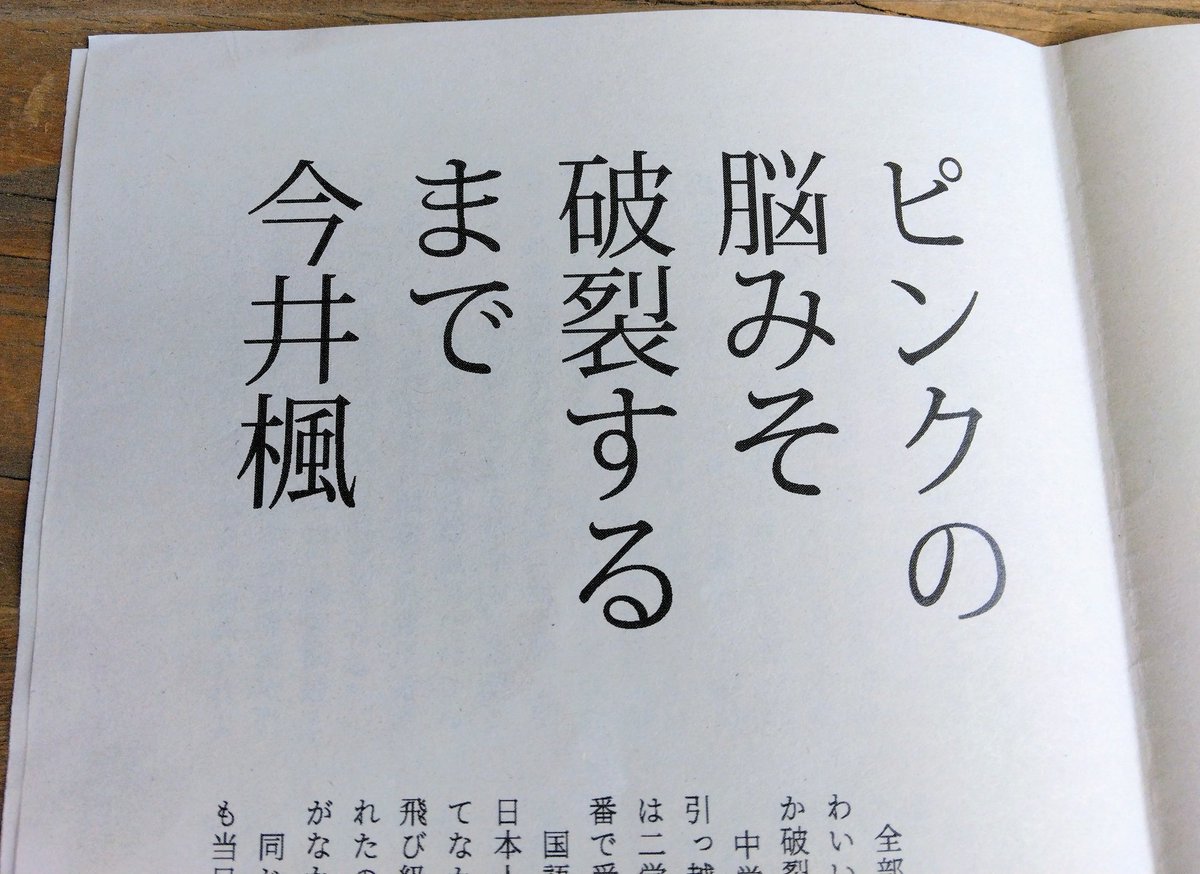 ピンクの
脳みそ
破裂する
まで
今井楓
全部
わいい
か破裂
中学
引っ越
は二学
番で
国語
日本
てな
飛び級
れたの
がな
同じ
も当日